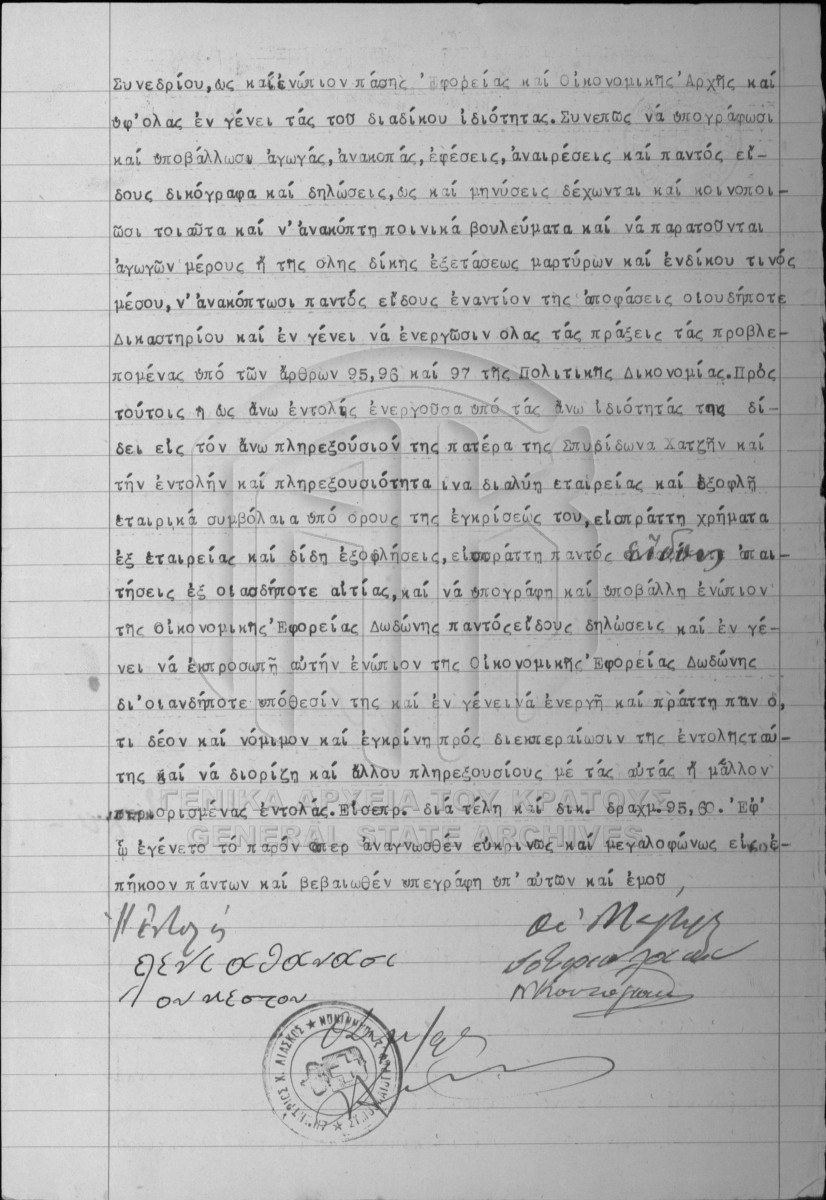 Συνεδρίου, ως καί ἐνώπιον πάσης Ἐφορείας καί Οἰκονομικῆς Ἀρχῆς καί
ὑφ'ολας ἐν γένει τάς τοῦ διαδίκου ἰδιότητας. Συνεπῶς νά ὑπογράφωσι
καί ὑποβάλλωσι ἀγωγάς, ἀνακοπάς, ἐφέσεις, ἀναιρέσεις καί παντός εἴ-
δους δικόγραφα καί δηλώσεις, ὡς καί μηνύσεις δέχωνται καί κοινοποι-
ῶσι τοιαῦτα καί ν'ἀνακόπτη ποινικά βουλεύματα καί νά παρατοῦνται
ἀγωγῶν μέρους ἤ της ολης δίκης ἐξετάσεως μαρτύρων καί ἐνδίκου τινός
μέσου, ν'ἀνακόπτωσι παντός εἴδους ἐναντίον της ἀποφάσεις οἱουδήποτε
Δικαστηρίου καί ἐν γένει νά ἐνεργῶσιν ολας τάς πράξεις τάς προβλε-
πομένας ὑπό τῶν ἄρθρων 95,96 καί 97 τῆς Πολιτικῆς Δικονομίας. Πρός
τούτοις ἡ ὡς ἄνω ἐντολής ἐνεργοῦσα ὑπό τάς ἄνω ἰδιότητάς της δί-
δει εἰς τόν ἄνω πληρεξούσιόν της πατέρα της Σπυρίδωνα Χατζῆν καί
τήν ἐντολήν καί πληρεξουσιότητα ἱνα διαλύη ἑταιρείας καί ἐξοφλῆ
ἑταιρικά συμβόλαια ὑπό ορους της ἐγκρίσεώς του, εἰσπράττη χρήματα
ἐξ ἑταιρείας καί δίδη ἐξοφλήσεις, εἰσπράττη παντός εἴδους ἀπαι-
τήσεις ἐξ οἱασδήποτε αἰτίας, καί νά ὑπογράφη καί ὑποβάλλη ἐνώπιον
της Οἰκονομικῆς Ἐφορείας Δωδώνης παντός εἴδους δηλώσεις καί ἐν γέ-
νει νά ἐκπροσωπῆ αὐτήν ἐνώπιον της Οἰκονομικῆς Ἐφορείας Δωδώνης
δι'οἱανδήποτε ὑπόθεσίν της καί ἐν γένει νά ἐνεργῆ καί πράττη παν ὁ,
τι δέον καί νόμιμον καί ἐγκρίνη πρός διεκπεραίωσιν της ἐντολής ταύ-
της καί νά διορίζη καί ἄλλου πληρεξουσίους μέ τάς αὐτάς ἤ μᾶλλον
περιορισμένας ἐντολάς. Εἰσεπρ. διά τέλη καί δικ. δραχμ. 95,60. Ἐφ'
ᾧ ἐγένετο τό παρόν οπερ ἀναγνωσθέν εὐκρινῶς καί μεγαλοφώνως εἰς ἐ-
πήκοον πάντων καί βεβαιωθέν ὑπεγράφη ὑπ'αὐτῶν καί ἐμοῦ,
ΓΕΝΙΚΑ ΑΡΧΕΙΑ ΤΟΥ ΚΡΑΤΟΥΣ
GENERAL STATE ARCHIVES
Ἡ ἐντολής Οἱ Μάρτυρες
ελενι αθανασι